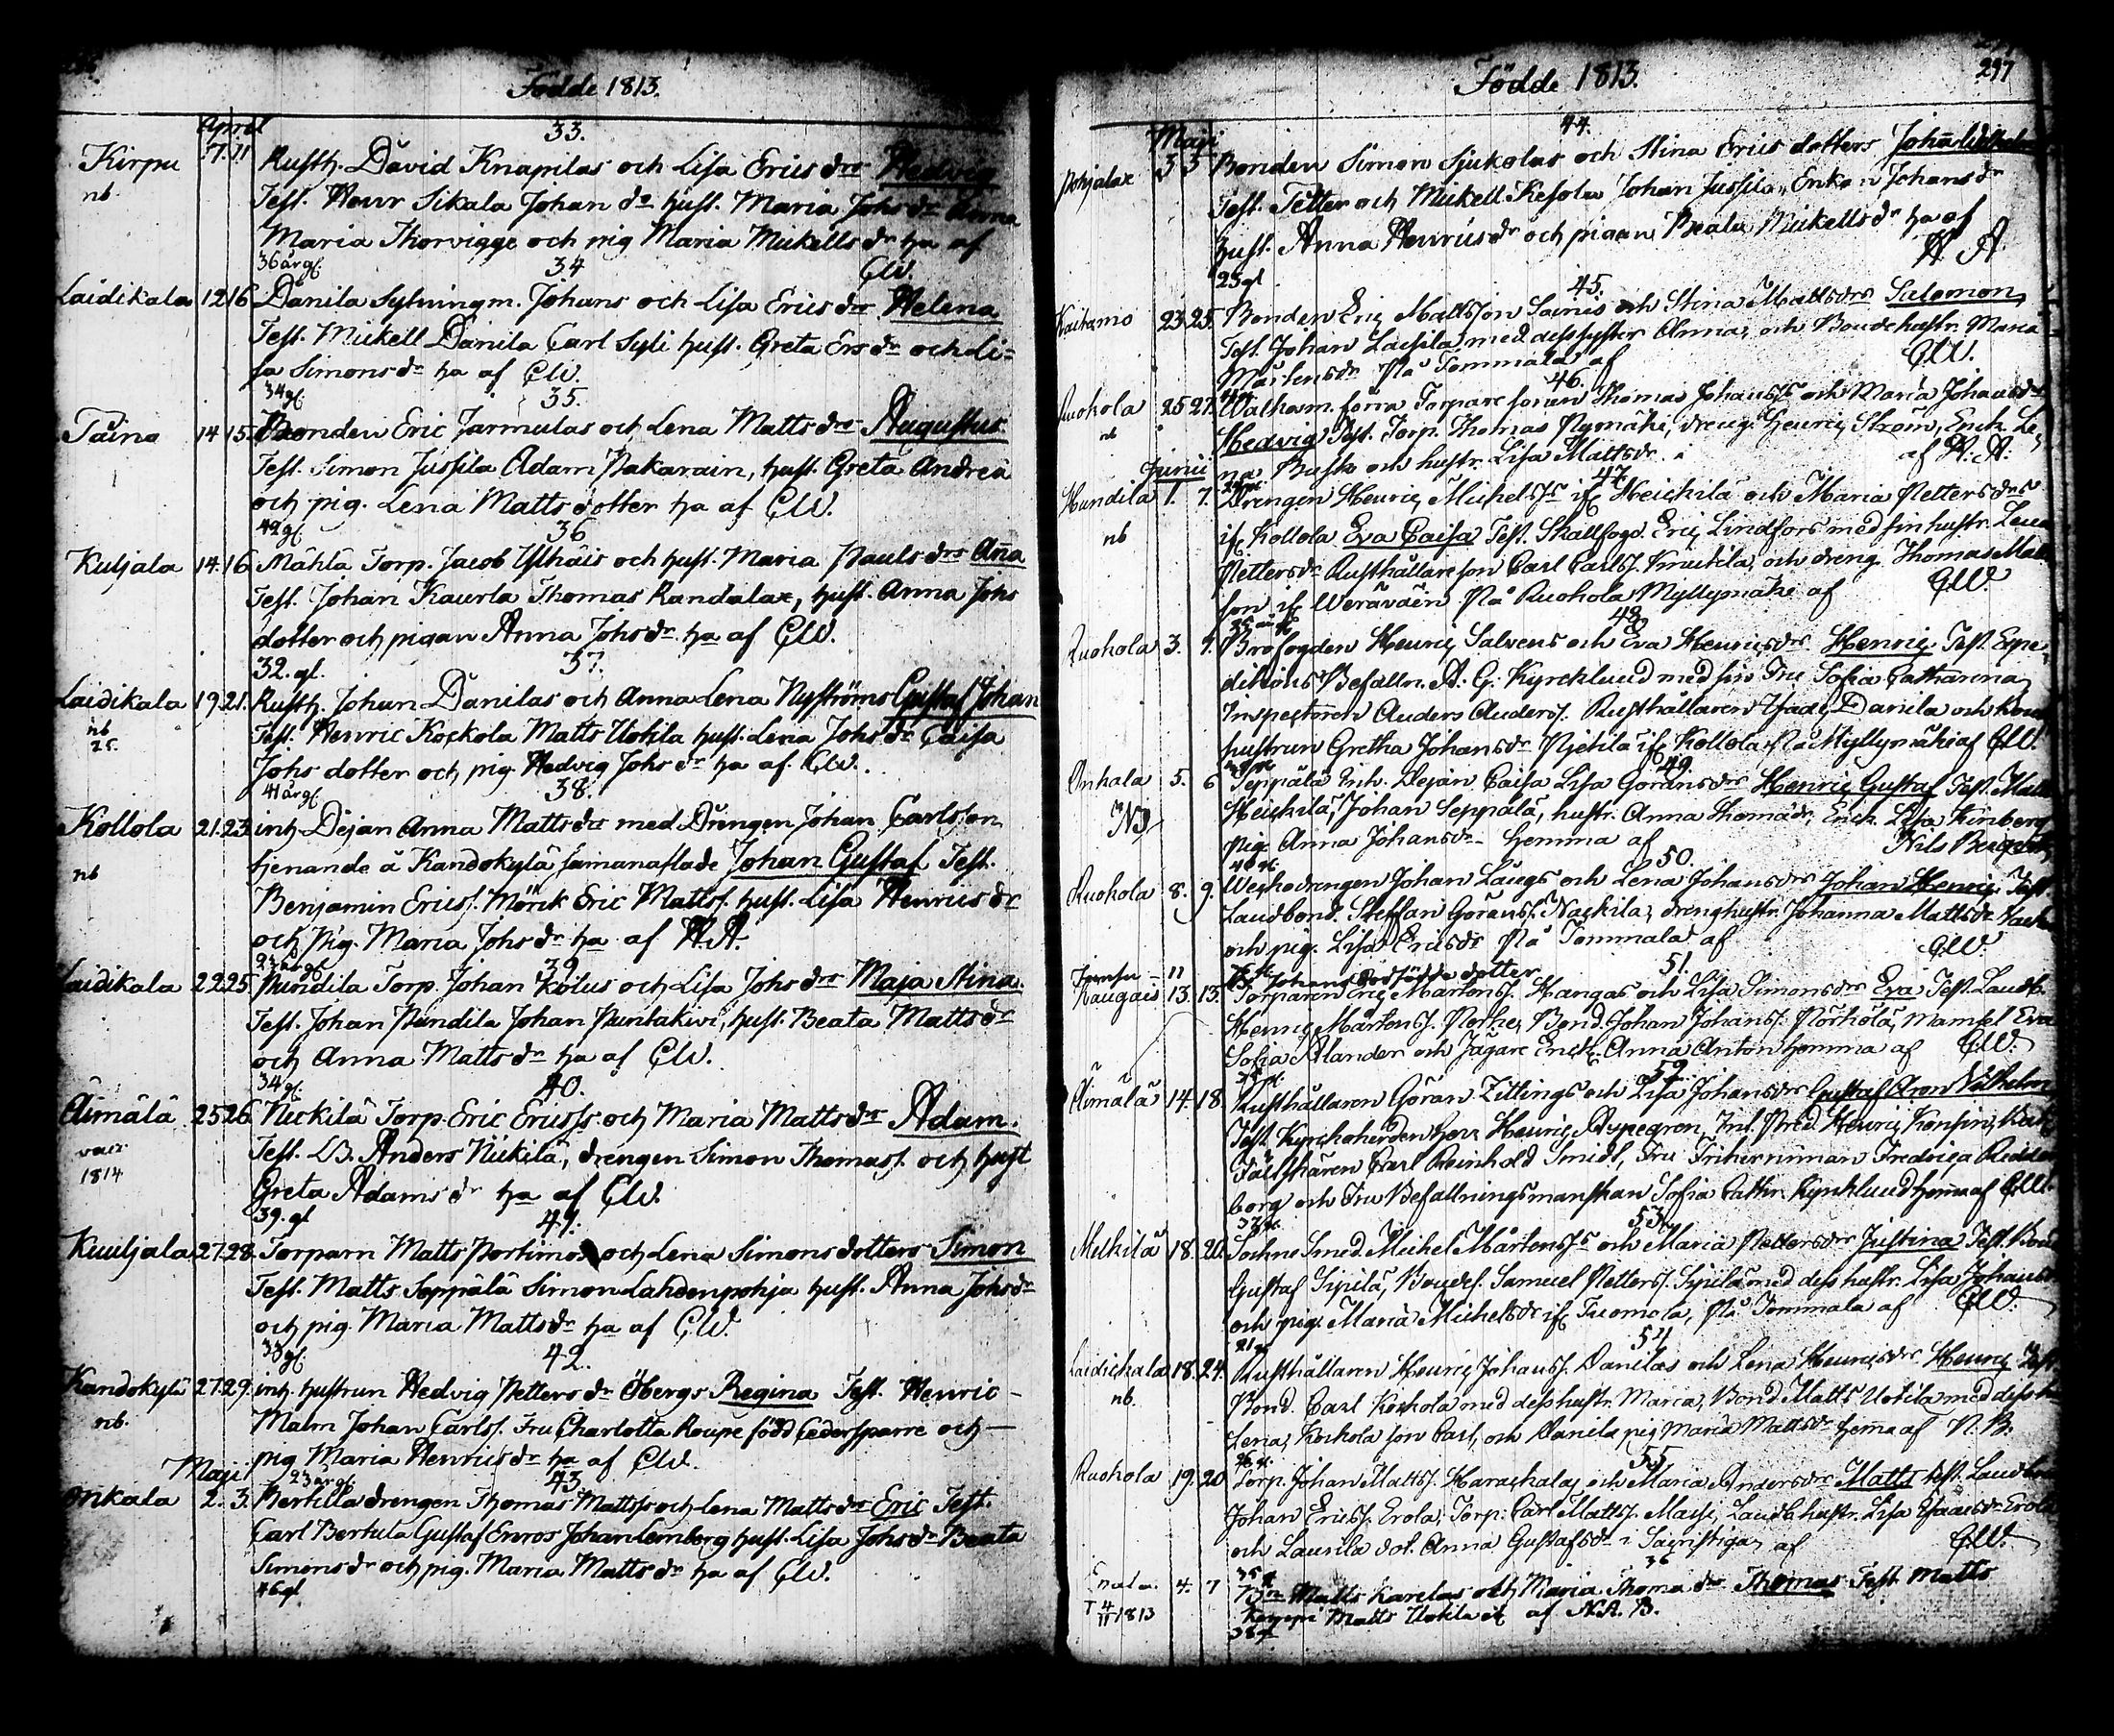 Födde 1813.
April
33.
Kirpu 7. 11 Rusth. David Knapilas och Lisa Erics drs Hedvig
nb. Test. Henr Sikala Johan dr hust. Maria Johs dr Anna
Maria Thorvigge och pig Maria Mickells dr ha af
36 år gl. 34 CW.
Laidikala 12 16 Danila Sytningm. Johans och Lisa Erics drs Helena
Test. Mickell Danila Carl Syli hust. Greta Ers dr och Li=
sa Simons dr ha af CW.
34 gl. 35.
Taino 14 15. Bonden Eric Jarmulas och Lena Matts drs Augustus
Test. Simon Jussila Adam Pakarain, hust. Greta Andreä
och pig. Lena Matts dotter ha af CW.
42 gl. 36
Kuljala 14. 16 Mahla Torp. Jacob Ylhäis och hust. Maria Pauls drs Ana
Test. Johan Kaurla Thomas Randalax, hust. Anna Johs
dotter och pigan Anna Johs dr ha af CW.
32. gl. 37.
Laidikala 19. 21. Rusth. Johan Danilas och Anna Lena Nyströms Gustaf Johan
nb Test. Henric Kockola Matts Uotila hust. Lena Johs dr Caisa
Johs dotter och pig Hedvig Johs dr ha af CW.
41 år gl. 38.
Kollola 21. 23. inh Dejan Anna Matts drs med Drengen Johan Carlsson
nb tjenande å Kandokylä samanaflade Johan Gustaf Test.
Benjamin Ericss. Mörck Eric Matts s. hust. Lisa Henrics dr
och pig. Maria Johs dr ha af AA.
23 år gl. 39
Laidikala 22 25. Pundila Torp. Johan Kölus och Lisa Johs drs Maja Stina.
Test. Johan Pundila Johan Puntakivi, hust. Beata Matts dr
och Anna Matts dr ha af CW.
34 gl. 40.
Äimälä 25 26. Nickilä Torp. Eric Ericss. och Maria Matts drs Adam.
1814 Test. LB. Anders Nickilä, drengen Simon Thomas s. och hust
Greta Adams dr ha af CW.
39. gl 41.
Kuuljala 27. 28. Torparn Matts Portimos och Lena Simons dotters Simon
Test. Matts Seppälä Simon Lahdenpohja hust. Anna Johs dr
och pig. Maria Matts dr ha af CW.
33 gl. 42.
Kandokylä 27 29. inh. hustrun Hedvig Petters dr Öbergs Regina Test. Henric
nb. Malm Johan Carlss. Fru Charlotta Roupe född Cedersparre och
pig Maria Henrics dr ha af CW.
Maji 23 år gl. 43
Onkala 2. 3. Bertilla drengen Thomas Mattss och Lena Matts dr Eric Test.
Carl Bertula Gustaf Enros Johan Lemberg hust. Lisa Johs dr Beata
Simons dr och pig. Maria Matts dr ha af CW.
46 gl
Födde 1813. 297
Maji 44.
Pohjalax 3 5 Bonden Simon Sjukolas och Stina Erics dotters
Test. Petter och Mickell Kesola Johan Jussila, Enkan Johans dr
hust. Anna Henrics dr och pigan Beata Mickells dr ha af
23 gl A A
45.
Kaitamo 23 25. Bonden Eric Mattsson Sainis och Stina Mattsdrs Salomon
Test. Johan Laisila med dess syster Anna, och Bondehustr. Maria
Mårtensdr På Tommala af CW.
46.
Ruohola 25 27. Walkom. förra Torpare sonen Thomas Johanss och Maria Johansdrs
nb Hedvig Test. Torp. Thomas Nymäke, dreng. Henric Ström, Enck. Le
Junii na Busk och hustr. Lisa Mattsdr af A. A.
47
Hundila 1. 7. Drengen Henric Michelss if. Heickilä och Maria Petters drs
nb if. Kollola Eva Caisa Test. Skallfogd. Eric Lindfors med sin hustr. Lena
Pettersdr Rusthållare son Carl Carlss. Knutila, och dreng. Thomas Matts
son if. Weräväin På Ruohola Myllymäke af CW.
48
Ruohola 3. 7. Brofogden Henric Salvens och Eva Henricsdrs Henric Test. Expe
ditions Befalln. A. G. Kyrcklund med sin Fru Sofia Catharina,
Inspectoren Anders Anderss. Rusthållaren Isac Danila och
hustrun Gretha Johansdr Pietilä if. Kollola På Myllymäki af CW.
49
Onkala 5. 6 Seppälä Inh. Dejan Caisa Lisa Göransdrs Henric Gustaf Test. Matts
Heickilä, Johan Seppälä, hustr. Anna Thomædr, Enck. Lisa Kinberg
pig. Anna Johansdr hemma af Nils
40 gl. 50.
Ruohola 8. 9. Weckodrengen Johan Laugs och Lena Johansdrs Johan Henric Test.
Landbond. Steffan Göranss. Nackila, drenghustr. Johanna Mattsdr
och pig. Lisa Ericsdr På Tommala af CW.
11 Johans dödfödde dotter 51.
Kaugais 13. 13. Torparen Eric Mårtenss. Kangas och Lisa Simonsdrs Eva Test. Landb.
Henric Mårtenss. Porke, Bond. Johan Johanss. Pörkölä, Mamsel Eva
Sofia Alander och Jägare Enck. Anna Anton hemma af CW.
52
Äimälä 14. 18. Rusthållaren Göran Zittings och Lisa Johansdrs Gustaf Aron Vilhelm
Test. Kyrckoherden Herr Henric Avegren,
Fältskären Carl Reinhold Smidt, Fru Fredrica
borg och Fru Befallningsmanskan Sofia Cathr. Kyrcklund hemma af CW.
37 gl. 53
Melkilä 18. 20. Sochne Smed. Michel Mårtenss och Maria Pettersdrs Justina Test. Bond
Gustaf Sipilä, Bondes. Samuel Petterss. Sipilä med dess hustr. Lisa Johansdr
och pig. Maria Michelsdr if. Tuomola, På Tommala af CW.
54
Laidickala 18. 24. Rusthållaren Henric Johanss. Danilas och Lena Henricsdrs Henric Test.
nb. Bond. Carl Kockola med dess hustr. Maria, Bond. Matts Uotila med dess
Lena, Kockola son Carl, och Danila pig. Maria Mattsdr hemma af N. B.
55
Ruohola 19. 20 Torp. Johan Mattss. Harackala, och Maria Andersdrs Matts test. Landbond
Johan Ericss. Erola, Torp. Carl Mattss. Massi, Landb. hustr. Lisa Isaacsdr Erola
och Laurila dot. Anna Gustafsdr i Sacristigan af CW.
56
4. 7 Matts Karelas och Maria Thoma drs Thomas Test. Matts
1813 Matts Uotila af N. A. B.
38 gl